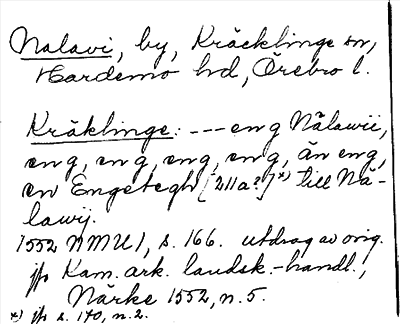 Nalavi, by, Kräcklinge sn,
Hardemo hd, Örebro l.
Kräklinge: --- eng Nälawii,
eng, eng, eng, eng, än eng,
en Engetegh [211a?]*) till Nä-
lawij.
1552 NMU 1, s. 166. utdrag av orig.
jfr Kam. ark. landsk.-handl.,
Närke 1552, n. 5.
*) jfr s. 170, n. 2.